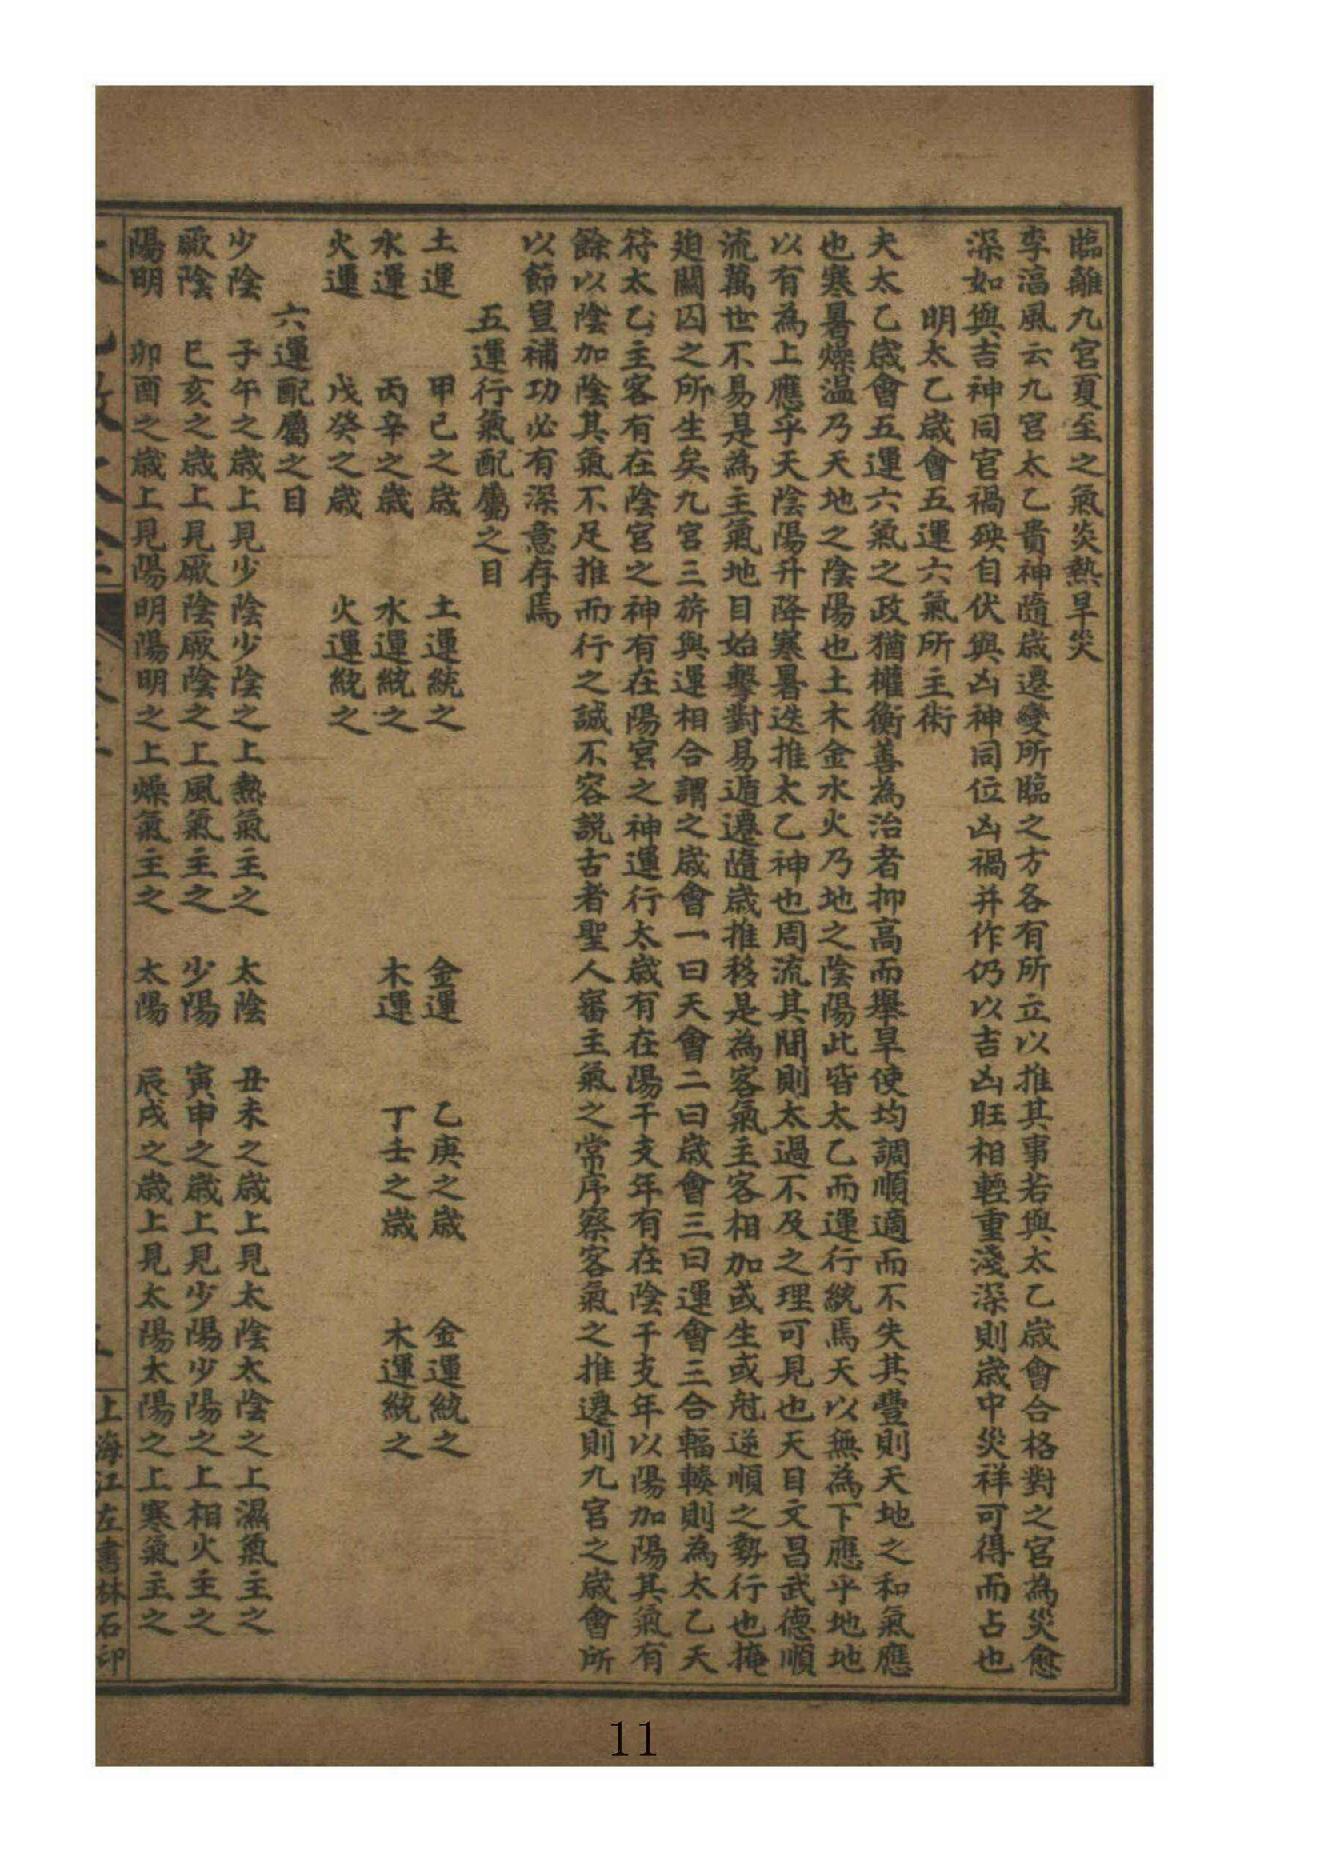 臨離九宮夏至之氣炎熱旱災
李淳風云九宮太乙貴神隨歲遷變所臨之方各有所立以推其事若與太乙歲會合格對之宮為災愈
深如與吉神同宮禍殃自伏與凶神同位凶禍并作仍以吉凶旺相輕重淺深則歲中災祥可得而占也
明太乙歲會五運六氣所主術
夫太乙歲會五運六氣之政猶權衡善為治者抑高而舉卑使均調順適而不失其豐則天地之和氣應
也寒暑燥温乃天地之陰陽也土木金水火乃地之陰陽此皆太乙而運行統焉天以無為下應乎地地
以有為上應乎天陰陽升降寒暑迭推太乙神也周流其間則太過不及之理可見也天目文昌武德順
流萬世不易是為主氣地目始擊對易遁遷隨歲推移是為客氣主客相加或生或尅逆順之勢行也掩
廹關囚之所生矣九宮三旂與運相合謂之歲會一曰天會二曰歲會三曰運會三合輻輳則為太乙天
符太乙主客有在陰宮之神有在陽宮之神運行太歲有在陽干支年有在陰干支年以陽加陽其氣有
餘以陰加陰其氣不足推而行之誠不容説古者聖人審主氣之常序察客氣之推遷則九宮之歲會所
以節宣補功必有深意存焉
五運行氣配屬之目
土運 甲己之歲 土運統之 金運 乙庚之歲 金運統之
水運 丙辛之歲 水運統之 木運 丁壬之歲 木運統之
火運 戊癸之歲 火運統之
六運配屬之目
少陰 子午之歲上見少陰少陰之上熱氣主之 太陰 丑未之歲上見太陰太陰之上濕氣主之
厥陰 巳亥之歲上見厥陰厥陰之上風氣主之 少陽 寅申之歲上見少陽少陽之上相火主之
陽明 卯酉之歲上見陽明陽明之上燥氣主之 太陽 辰戌之歲上見太陽太陽之上寒氣主之
上海江左書林石印
11